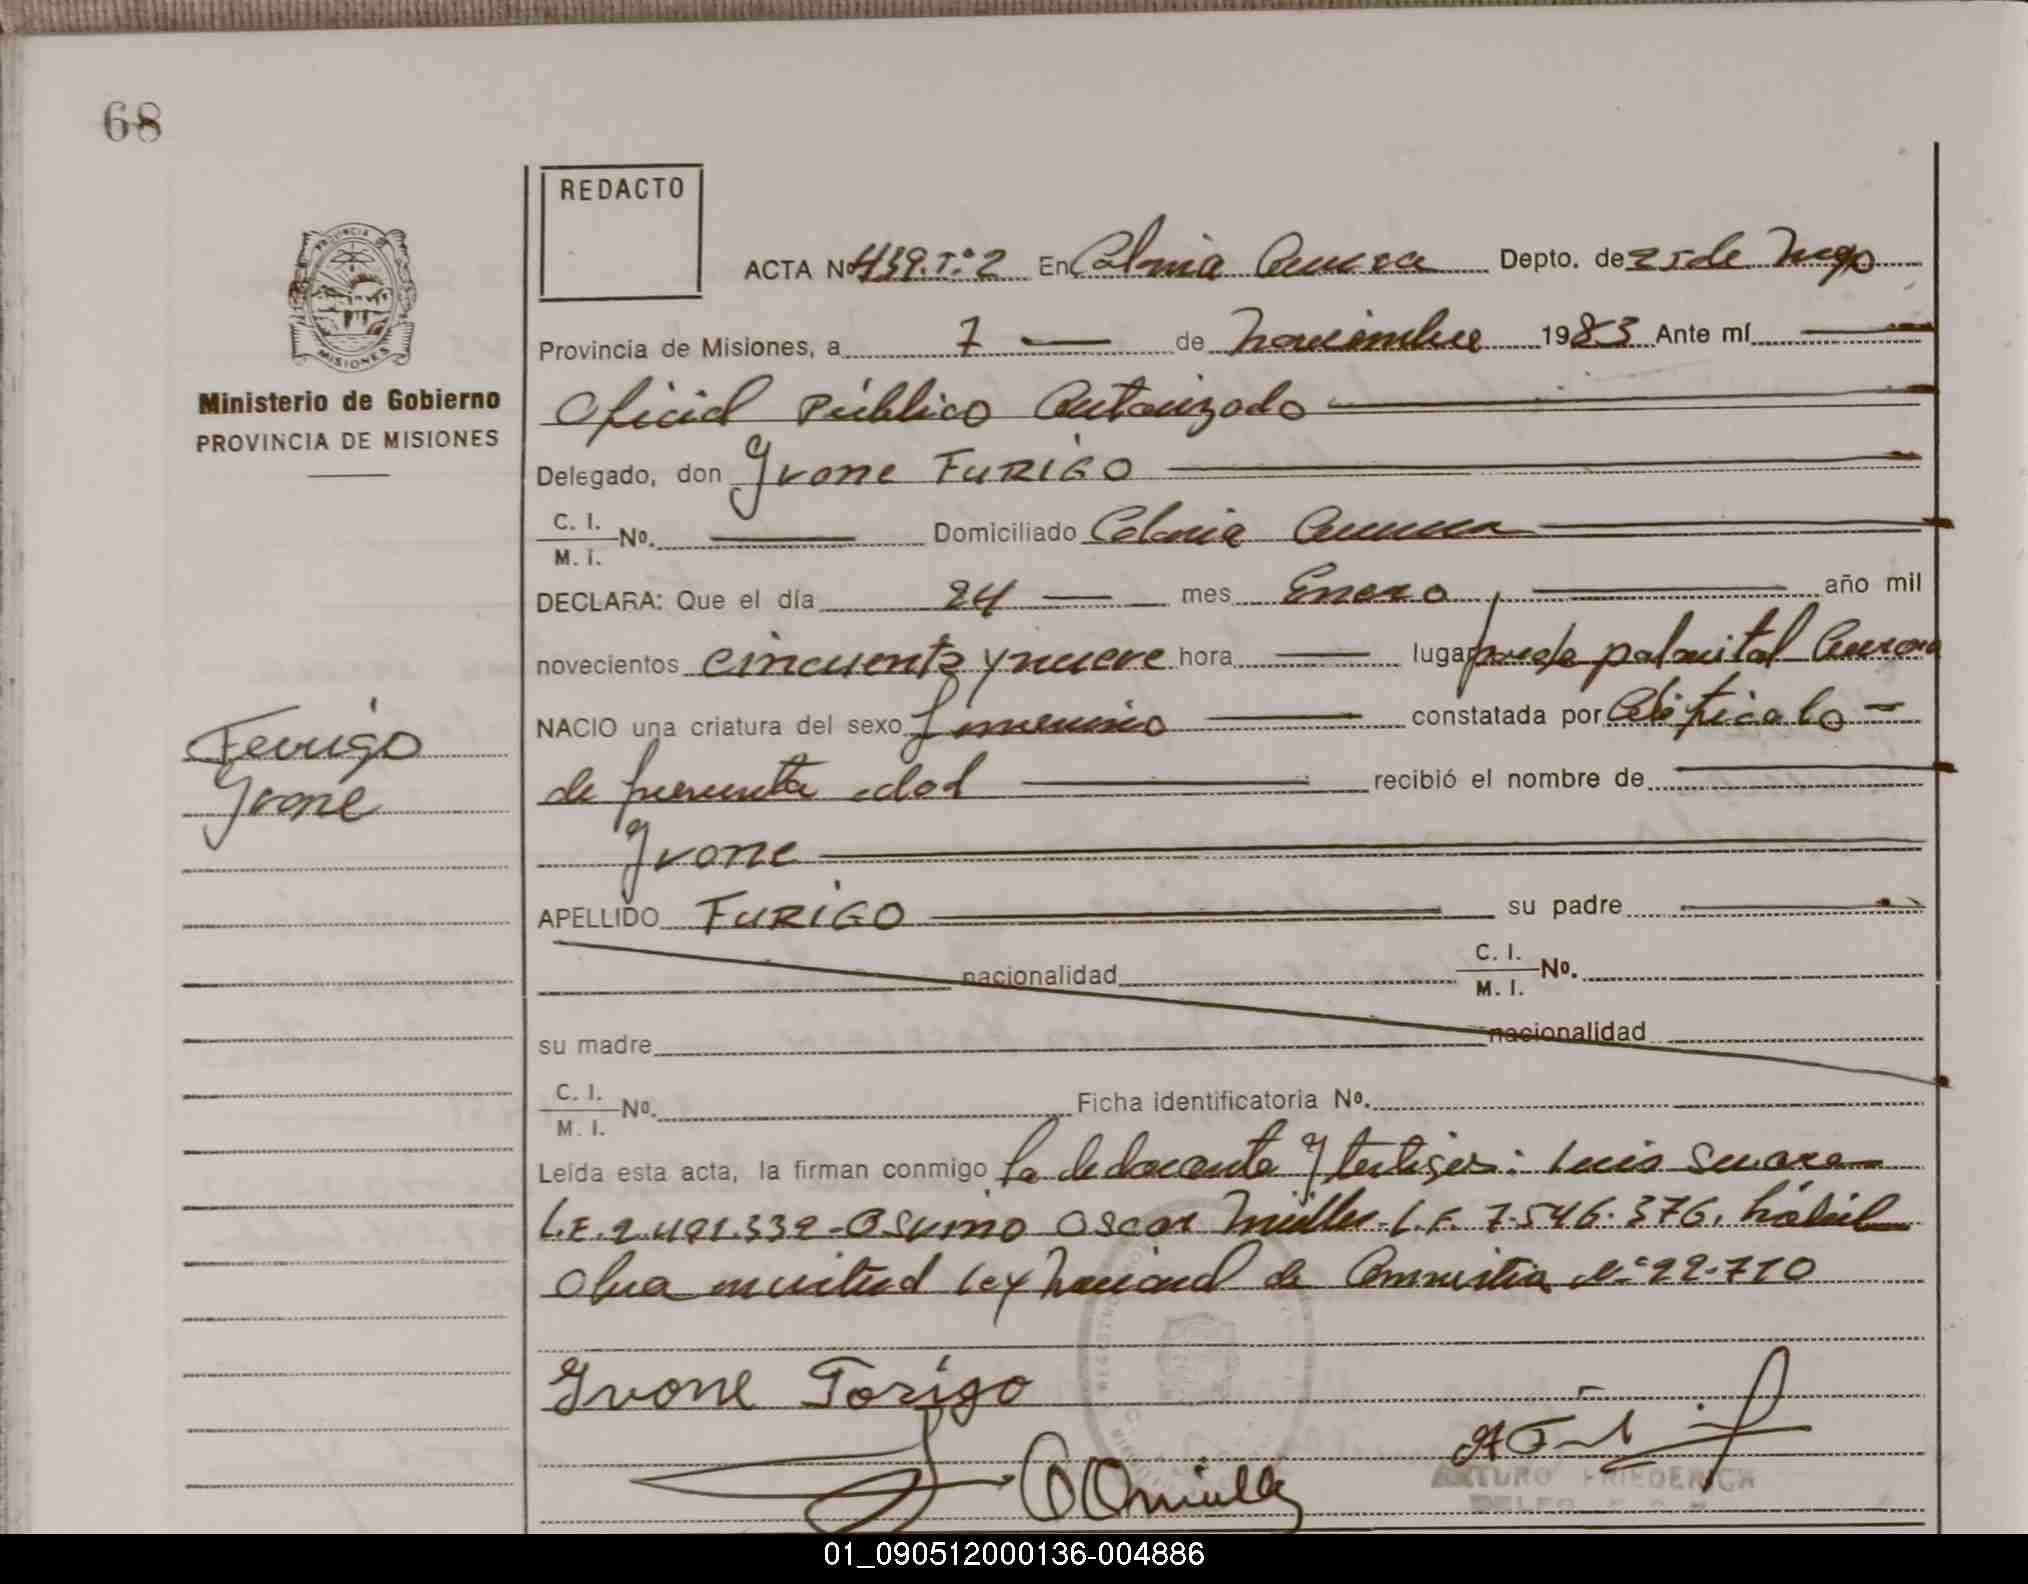 68
REDACTO
ACTA Nº 439. Tº 2 En Colonia Aurora Depto. de 25 de Mayo
PROVINCIA DE
MISIONES
Provincia de Misiones, a 7 de Noviembre 1983 Ante mí
Ministerio de Gobierno
PROVINCIA DE MISIONES
Oficial Público Autorizado
Delegado, don Yvone FURIGO
C. I.
M. I. Nº. Domiciliado Colonia Aurora
DECLARA: Que el día 24 mes Enero año mil
novecientos cincuenta y nueve hora lugar palmital Aurora
NACIO una criatura del sexo femenino constatada por
de presunta edad recibió el nombre de
Ferrigo
Yvone
Yvone
APELLIDO FURIGO su padre
nacionalidad C. I.
M. I. Nº.
su madre nacionalidad
C. I.
M. I. Nº. Ficha identificatoria Nº.
Leída esta acta, la firman conmigo la declarante y testigos: Luis
L.E. 2.491.339- Oscar Müller L.E. 7.546.376, hábiles
Obra en virtud Ley Nacional de Amnistia Nº 22.710
Yvone Forigo
ARTURO FRIEDERICH
01_090512000136-004886